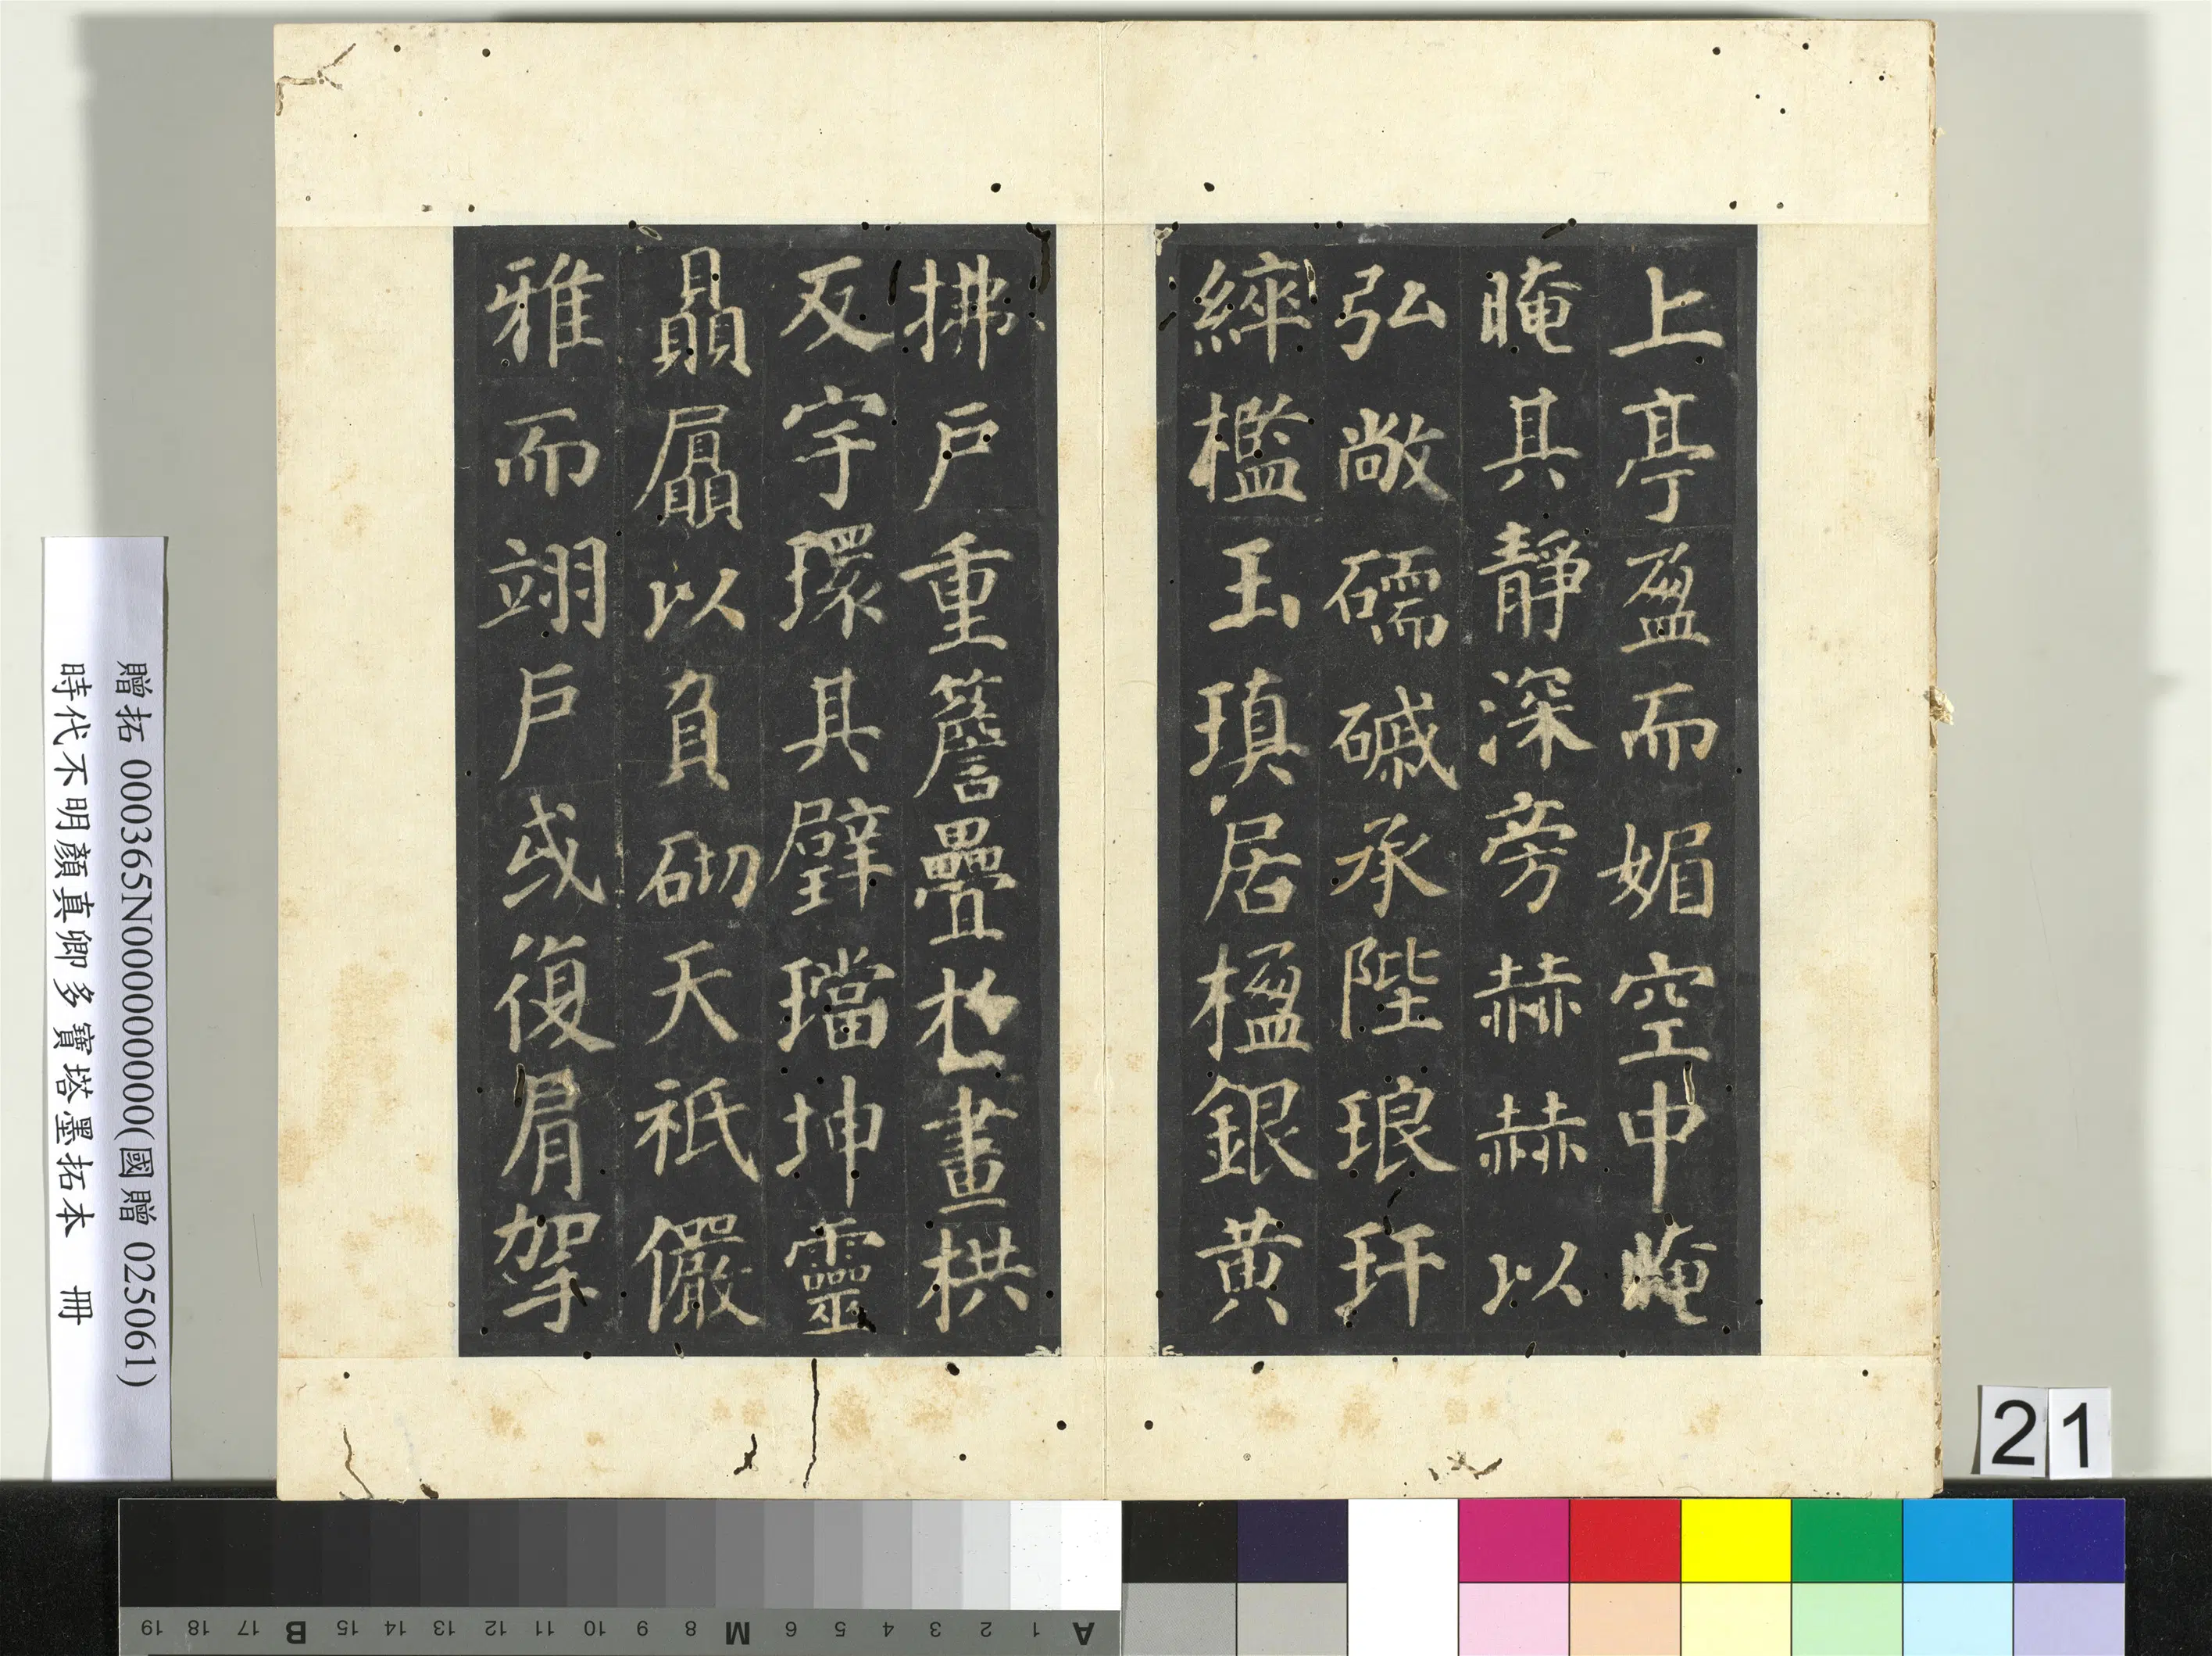 上亭盈而媚空中晻
晻其靜深旁赫赫以
弘敞礝磩承陛琅玕
綷檻玉瑱居楹銀黃
拂戶重簷疊於畫栱
反宇環其璧璫坤靈
贔屭以負砌天祇儼
雅而翊戶或復肩挐
贈拓 000365N000000000(國贈 025061)
時代不明顏真卿多寶塔墨拓本 冊
21
A 1 2 3 4 5 6 M 8 9 10 11 12 13 14 15 B 17 18 19